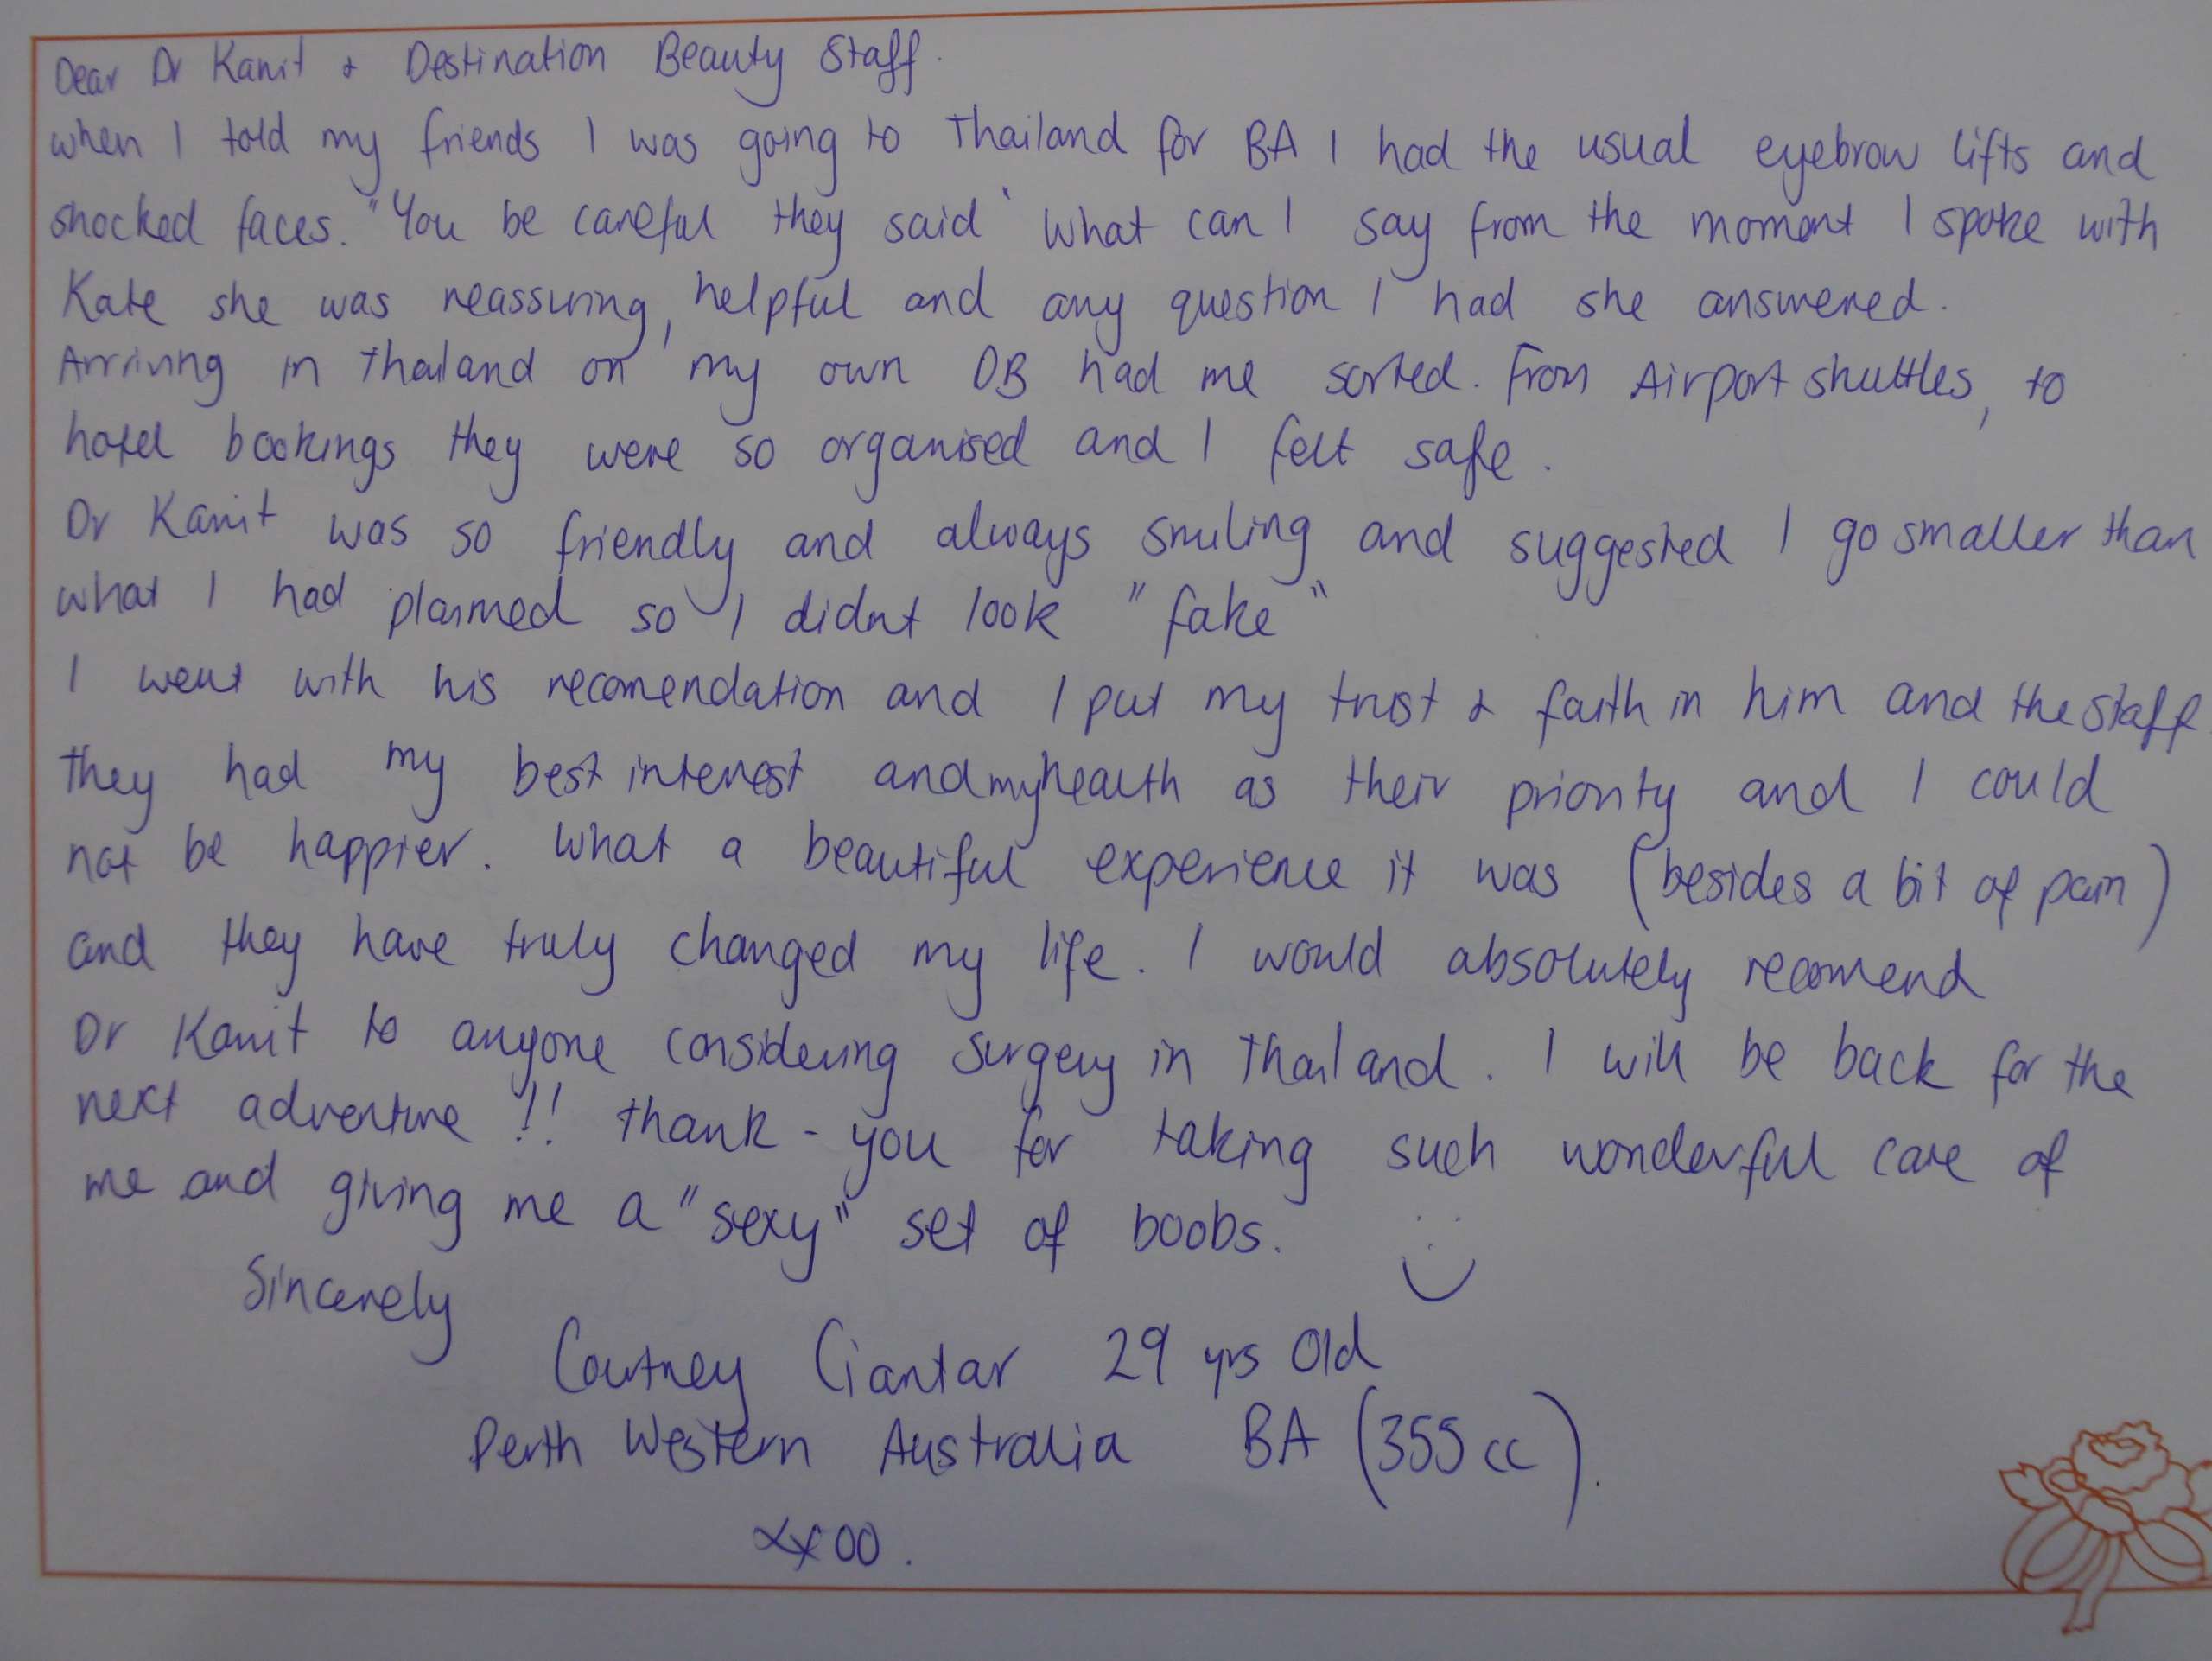 Dear Dr Kanit & Destination Beauty Staff.
when I told my friends I was going to Thailand for BA I had the usual eyebrow lifts and
shocked faces. "You be careful they said" What can I say from the moment I spoke with
Kate she was reassuring, helpful and any question I had she answered.
Arriving in Thailand on my own DB had me sorted. From Airport shuttles, to
hotel bookings they were so organised and I felt safe.
Dr Kanit was so friendly and always smiling and suggested I go smaller than
what I had planned so I didnt look "fake"
I went with his recomendation and I put my trust & faith in him and the staff.
they had my best interest and my health as their priority and I could
not be happier. What a beautiful experience it was (besides a bit of pain)
and they have truly changed my life. I would absolutely recomend
Dr Kanit to anyone considering surgery in Thailand. I will be back for the
next adventure!! thank-you for taking such wonderful care of
me and giving me a "sexy" set of boobs.
Sincerely
Courtney Ciantar 29 yrs Old
Perth Western Australia BA (355cc).
xxoo.